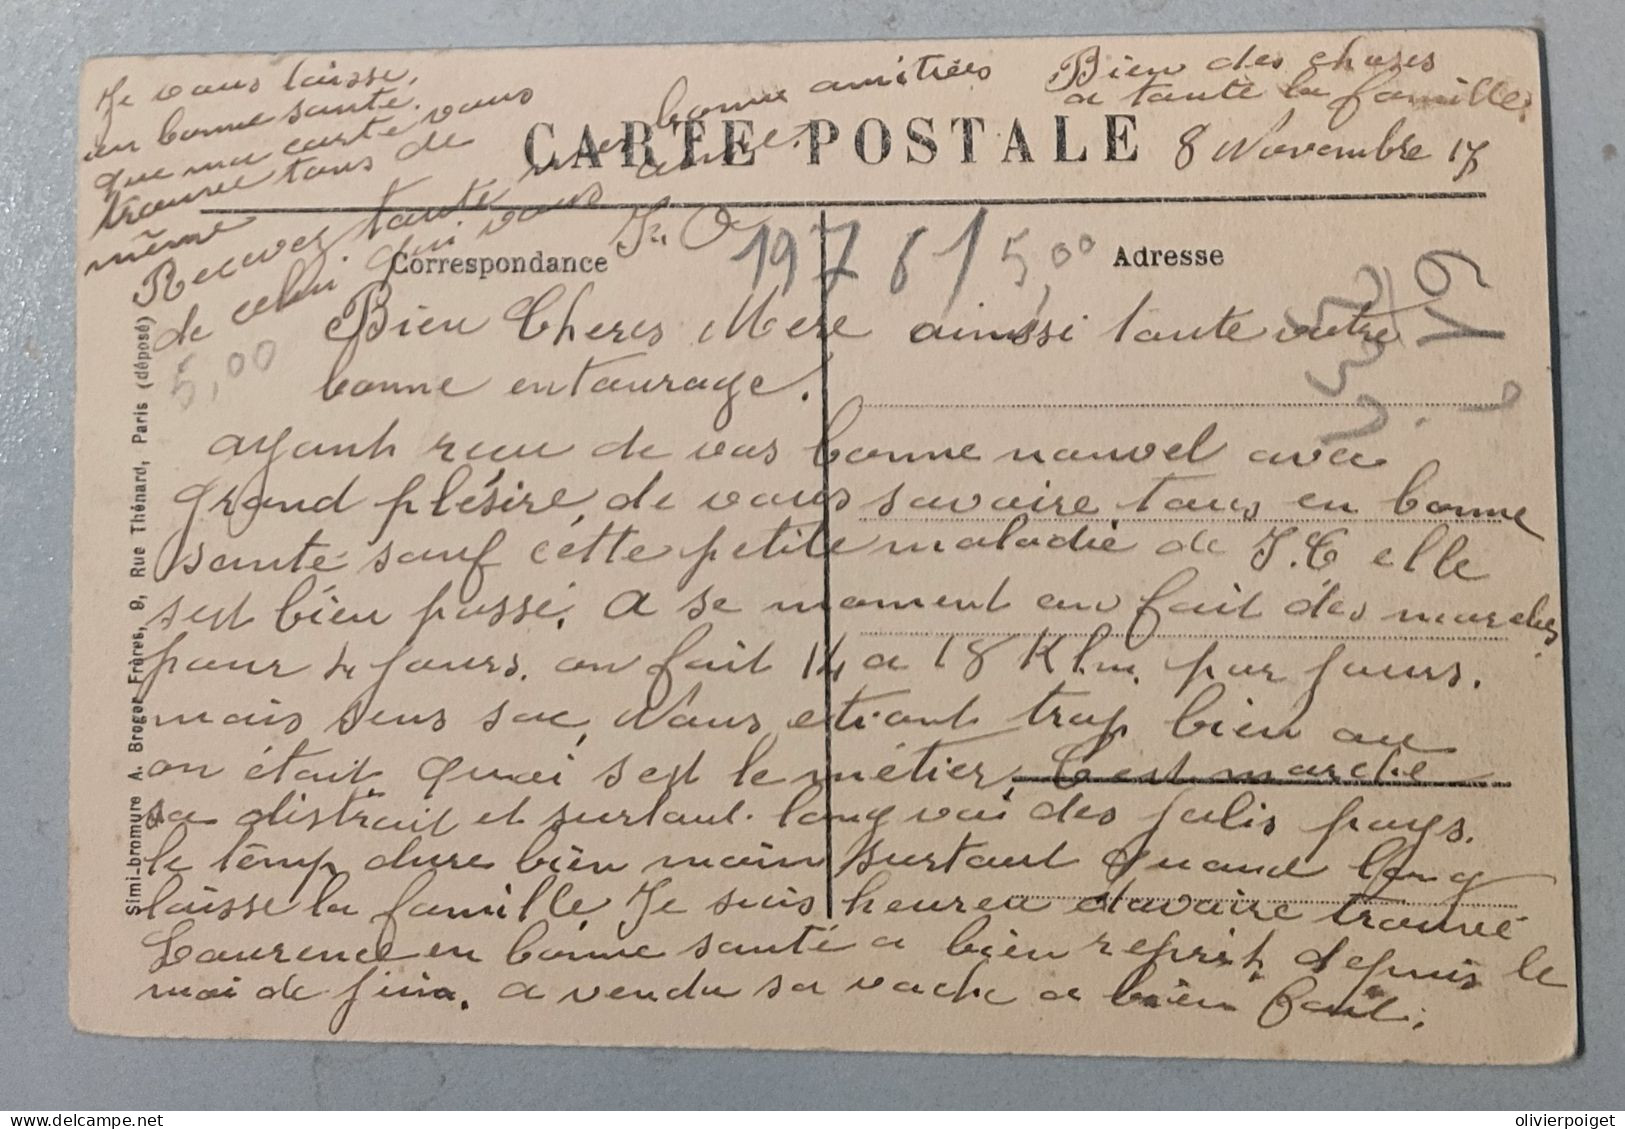 CARTE POSTALE
8 Novembre 17
Correspondance
Adresse
19761 5,00
5,00
Bien Cheres Mere ainssi toute votre
bonne entourage.
ayant recu de vos bonne nouvel avec
grand plésire, de vous savoire tous en bonne
santé sauf cette petite maladie de elle
sest bien passé. A se moment on fait des marches
pour 4 jours. on fait 14 a 18 Klm. par jours.
mais sens sac, Nous etiont trop bien au
on était quoi sest le métier, C'est marche
sa distrait et surtout. long voi des jolis pays.
le temp dure bien main surtout quand long
laisse la famille Je suis heureu davoire trouvé
Laurence en bonne santé a bien reprit depuis le
moi de juin. a vendu sa vache a bien fait.
Je vous laisse,
en bonne santé.
que ma carte vous
trouve tous de
même
Recevez toute une bonne amitiés
de celui qui vous aime.
Bien des choses
a toute la famille
Simi-bromure A. Breger Frères, 9, Rue Thénard, Paris (déposé)
olivierpoiget